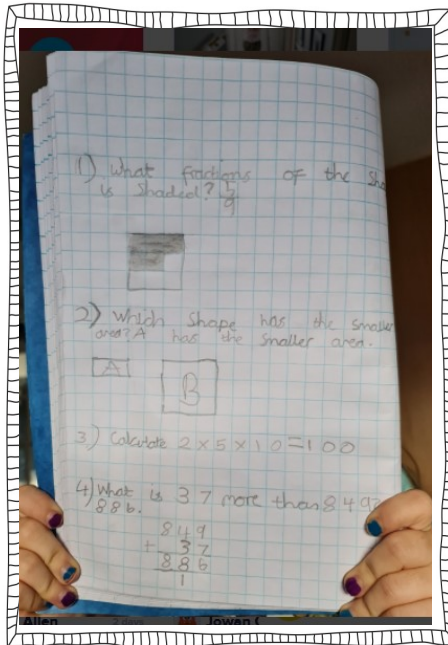 1) What fractions of the sha
is shaded? 5/9
2) Which shape has the smaller
area? A has the smaller area.
A
B
3) Calculate 2 x 5 x 10 = 100
4) What is 37 more than 849?
886.
849
+ 37
886
1
Allen 2 days Jowan C